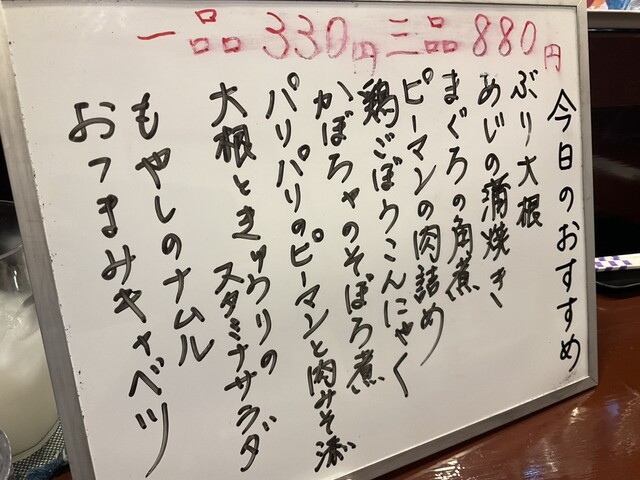 一品330円 三品880円
今日のおすすめ
ぶり大根
あじの蒲焼き
まぐろの角煮
ピーマンの肉詰め
鶏ごぼうこんにゃく
かぼちゃのそぼろ煮
パリパリのピーマンと肉みそ添
大根ときゅうりの
スタミナサラダ
もやしのナムル
おつまみキャベツ